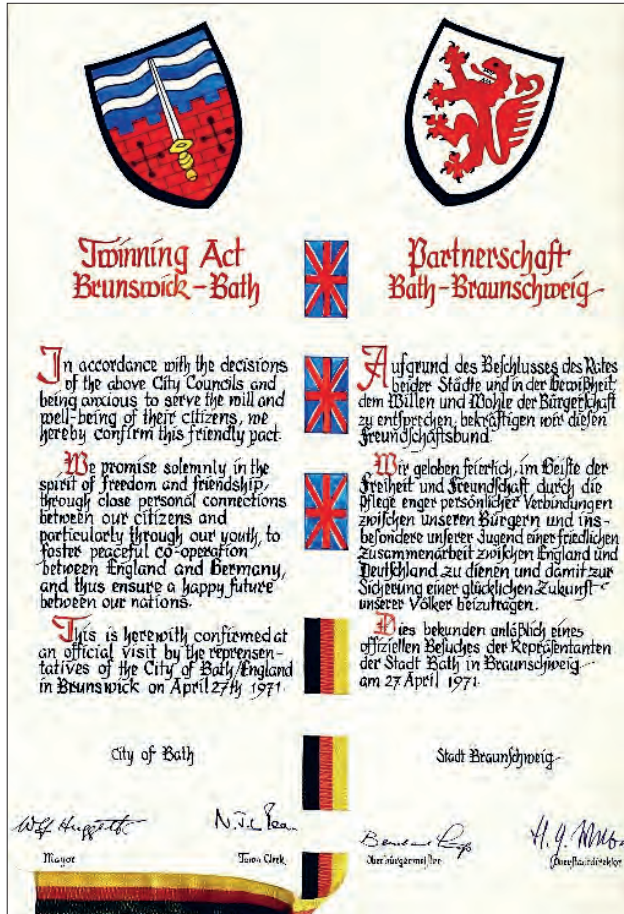 Twinning Act
Brunswick-Bath
In accordance with the decisions
of the above City Councils and
being anxious to serve the will and
well-being of their citizens, we
hereby confirm this friendly pact.
We promise solemnly in the
spirit of freedom and friendship,
through close personal connections
between our citizens and
particularly through our youth, to
foster peaceful co-operation
between England and Germany,
and thus ensure a happy future
between our nations.
This is herewith confirmed at
an official visit by the reprensen-
tatives of the City of Bath/England
in Brunswick on April 27th 1971.
City of Bath
Huggett
Mayor
Town Clerk
Partnerschaft
Bath-Braunschweig
Aufgrund des Beschlusses des Rates
beider Städte und in der Gewißheit
dem Willen und Wohle der Bürgerschaft
zu entsprechen, bekräftigen wir diesen
Freundschaftsbund.
Wir geloben feierlich, im Geiste der
Freiheit und Freundschaft durch die
Pflege enger persönlicher Verbindungen
zwischen unseren Bürgern und ins-
besondere unserer Jugend einer friedlichen
Zusammenarbeit zwischen England und
Deutschland zu dienen und damit zur
Sicherung einer glücklichen Zukunft
unserer Völker beizutragen.
Dies bekunden anläßlich eines
offiziellen Besuches der Repräsentanten
der Stadt Bath in Braunschweig
am 27 April 1971.
Stadt Braunschweig
Oberbürgermeister
Oberstadtdirektor